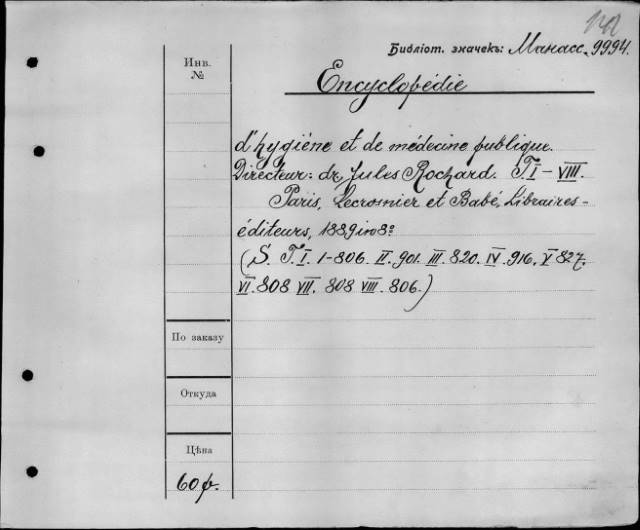 Библіот. значекъ: Манасс. 9994.
Инв.
№
Encyclopédie
d'hygiéne et de médecine publique.
Directeur: dr. Jules Rochard. T. I – VIII.
Paris, Lecrosnier et Babé, Libraires-
éditeurs, 1889 in 8º
(S. T. I. 1-806. II. 901. III. 820. IV. 916. V 827.
VI. 808 VII. 808 VIII. 806.)
По заказу
Откуда
Цѣна
60 р.